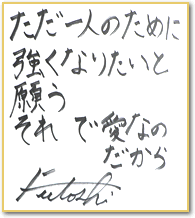 ただ一人のために
強くなりたいと
願う
それで愛なの
だから
Futoshi